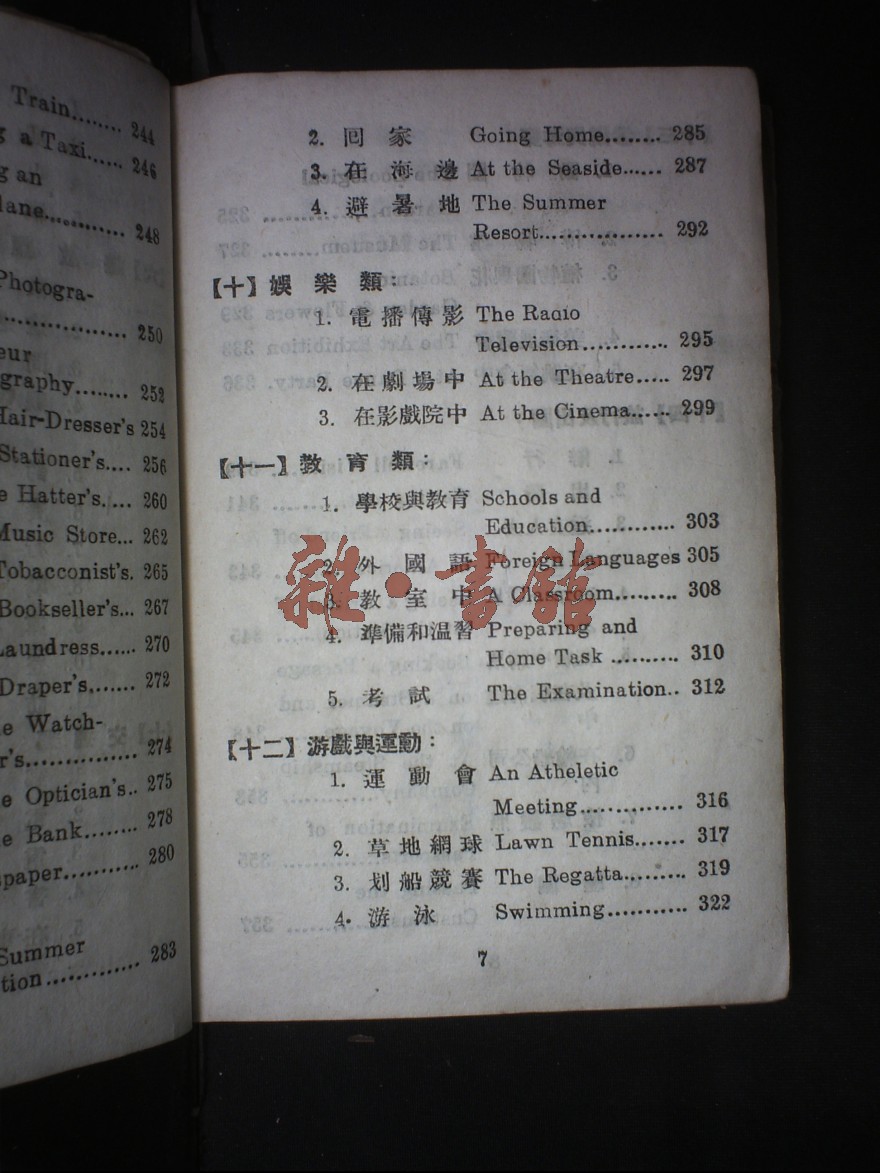 Train........ 244
g a Taxi...... 246
g an
lane............ 248
Photogra-
................. 250
eur
graphy........ 252
Hair-Dresser's 254
Stationer's.... 256
e Hatter's..... 260
Music Store... 262
Tobacconist's. 265
Bookseller's... 267
Laundress...... 270
Draper's....... 272
e Watch-
r's............... 274
e Optician's.. 275
e Bank........ 278
spaper........... 280
Summer
tion............. 283
2. 囘家 Going Home........ 285
3. 在海邊 At the Seaside...... 287
4. 避暑地 The Summer
Resort.................. 292
【十】娛樂類:
1. 電播傳影 The Radio
Television............ 295
2. 在劇場中 At the Theatre..... 297
3. 在影戲院中 At the Cinema...... 299
【十一】教育類:
1. 學校與教育 Schools and
Education............ 303
2. 外國語 Foreign Languages 305
3. 教室中 A Classroom......... 308
4. 準備和温習 Preparing and
Home Task .......... 310
5. 考試 The Examination.. 312
【十二】游戲與運動:
1. 運動會 An Atheletic
Meeting............... 316
2. 草地網球 Lawn Tennis....... 317
3. 划船競賽 The Regatta......... 319
4. 游泳 Swimming........... 322
7
雜·書館